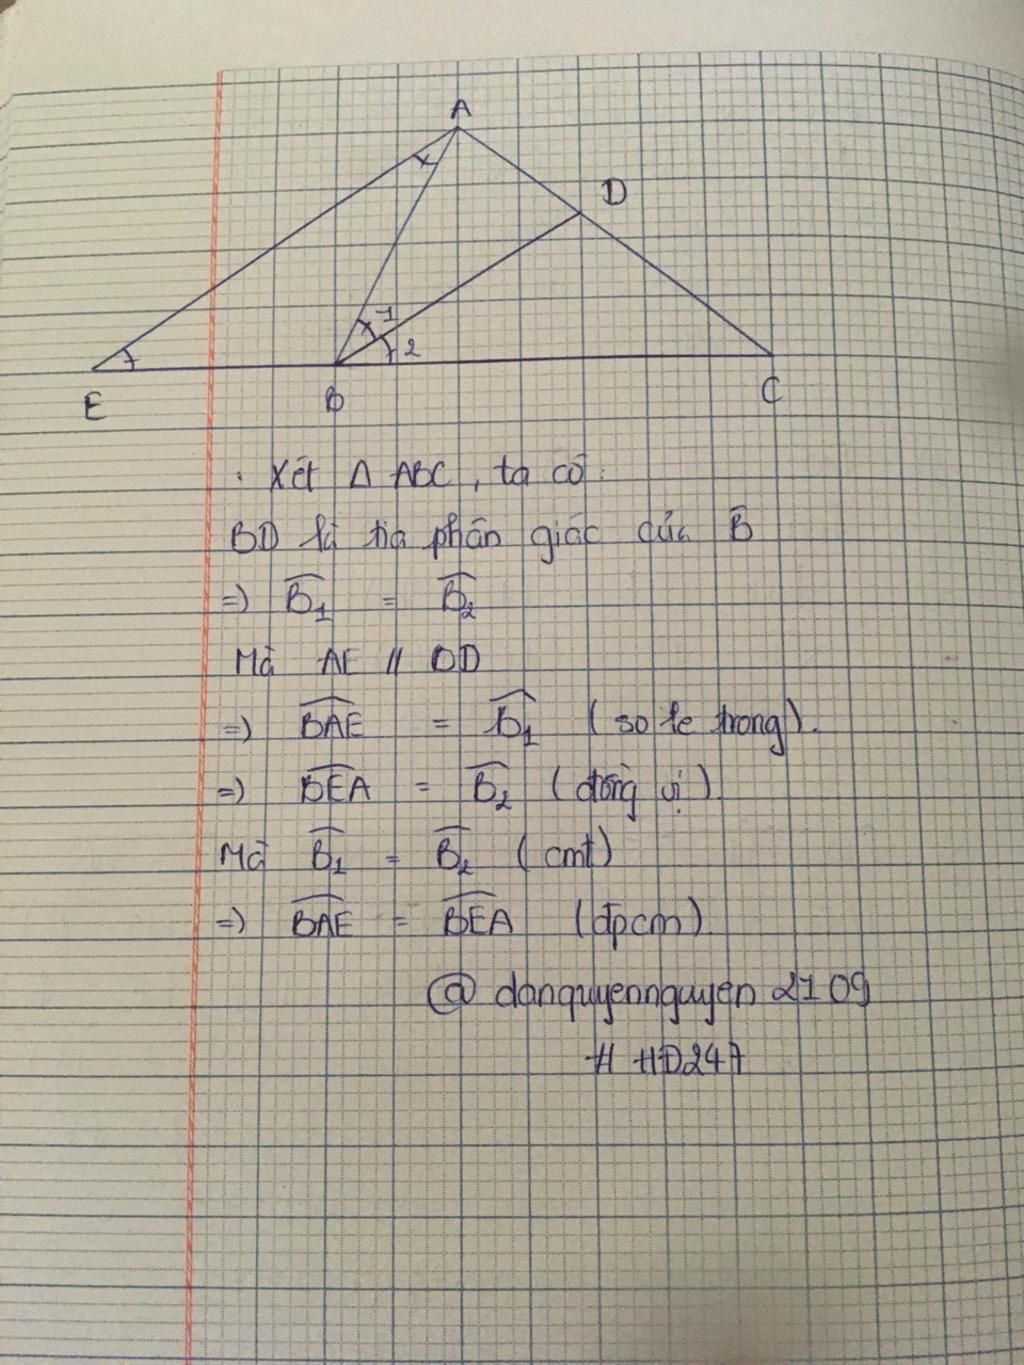 A
D
1
2
E
B
C
. Xét Δ ABC, ta có:
BD là tia phân giác của B̂
=) B̂₁ = B̂₂
Mà AE // BD
=) BAE = B̂₁ (so le trong).
=) BEA = B̂₂ (đồng vị)
Mà B̂₁ = B̂₂ (cmt)
=) BAE = BEA (đpcm)
@ danquyennguyen 2109
# HD247